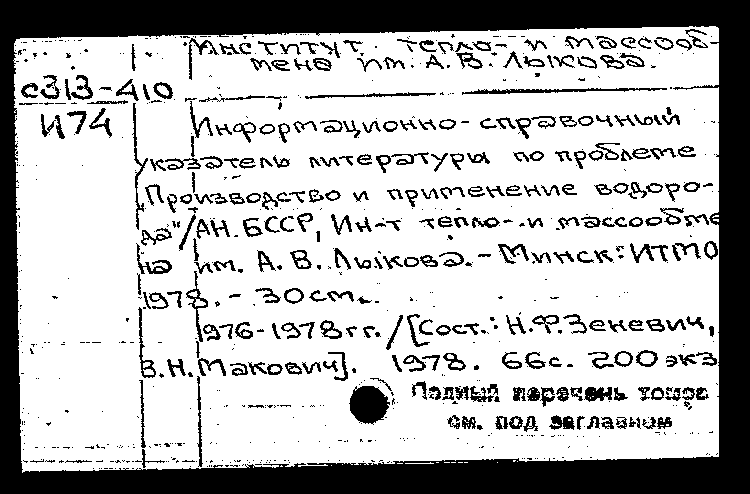 Институт тепло- и массооб-
мена им. А. В. Лыкова.
с313-410
И74
Информационно-справочный
указатель литературы по проблеме
„Производство и применение водоро-
да"/АН БССР, Ин-т тепло- и массообме
на им. А. В. Лыкова. - Минск: ИТМО
1978. - 30см.
1976-1978гг. / [Сост.: Н.Ф. Зеневич,
В.Н. Макович]. 1978. 66с. 200 экз
Полный перечень томов
см. под заглавием